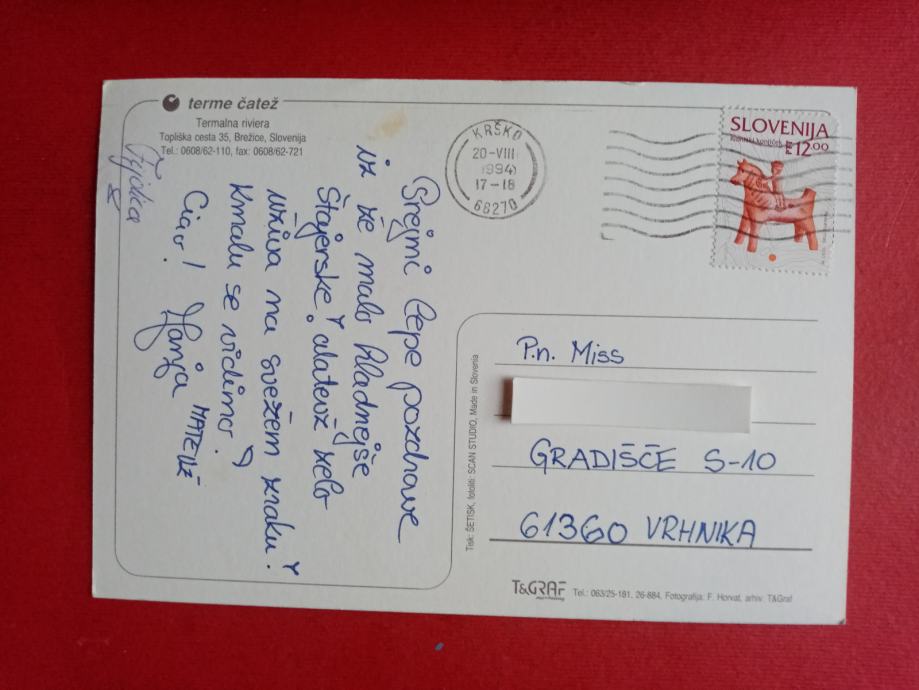 terme čatež
Termalna riviera
Topliška cesta 35, Brežice, Slovenija
Tel.: 0608/62-110, fax: 0608/62-721
KRŠKO
20-VIII
1994
17-18
68270
SLOVENIJA
12.00
Srejmi lepe pozdrave
iz že malo hladnejše
Štajerske! Matevž zelo
uživa na svežem zraku!
Kmalu se vidimo!
Ciao! Manja
MATEVŽ
P.n. Miss
GRADIŠČE S-10
61360 VRHNIKA
Tisk: ŠETISK, fotoliti: SCAN STUDIO, Made in Slovenia
T&GRAF
Tel.: 063/25-181, 26-884, Fotografija: F. Horvat, arhiv: T&Graf